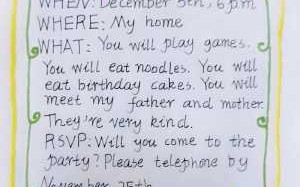 WHEN: December 5th, 6 pm
WHERE: My home
WHAT: You will play games.
You will eat noodles. You will
eat birthday cakes. You will
meet my father and mother.
They're very kind.
RSVP: Will you come to the
party? Please telephone by
November 25th